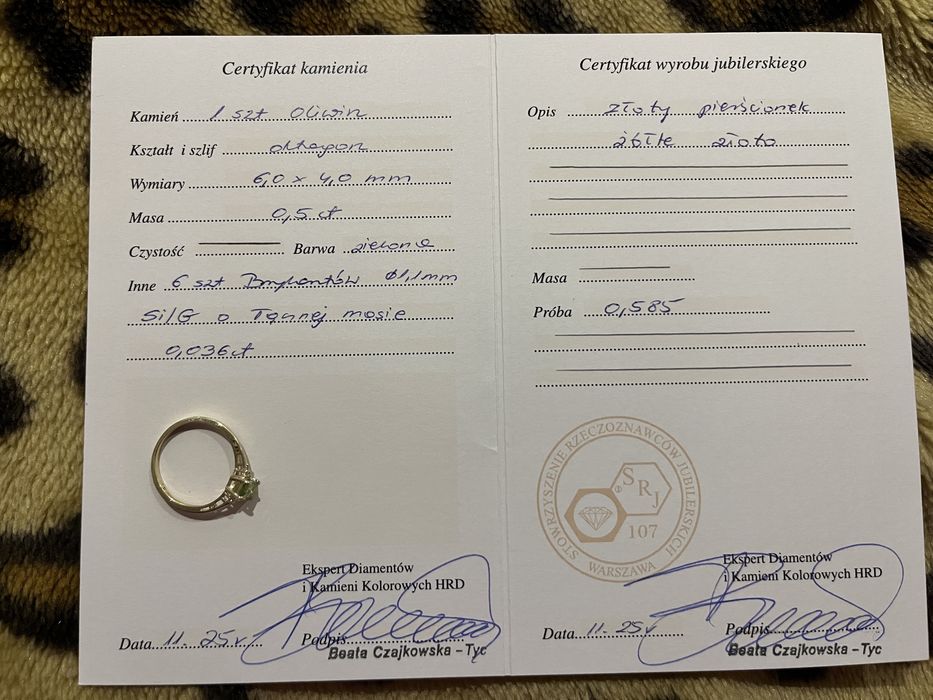 Certyfikat kamienia
Kamień 1 szt Oliwin
Kształt i szlif oktagon
Wymiary 6,0 x 4,0 mm
Masa 0,5 ct
Czystość Barwa zielona
Inne 6 szt Brylantów Ø1,1mm
Si/G o łącznej masie
0,036ct
Ekspert Diamentów
i Kamieni Kolorowych HRD
Data 11-25r Podpis
Beata Czajkowska – Tyc
Certyfikat wyrobu jubilerskiego
Opis złoty pierścionek
żółte złoto
Masa
Próba 0,585
STOWARZYSZENIE RZECZOZNAWCÓW JUBILERSKICH
SRJ
107
WARSZAWA
Ekspert Diamentów
i Kamieni Kolorowych HRD
Data 11-25r Podpis
Beata Czajkowska – Tyc